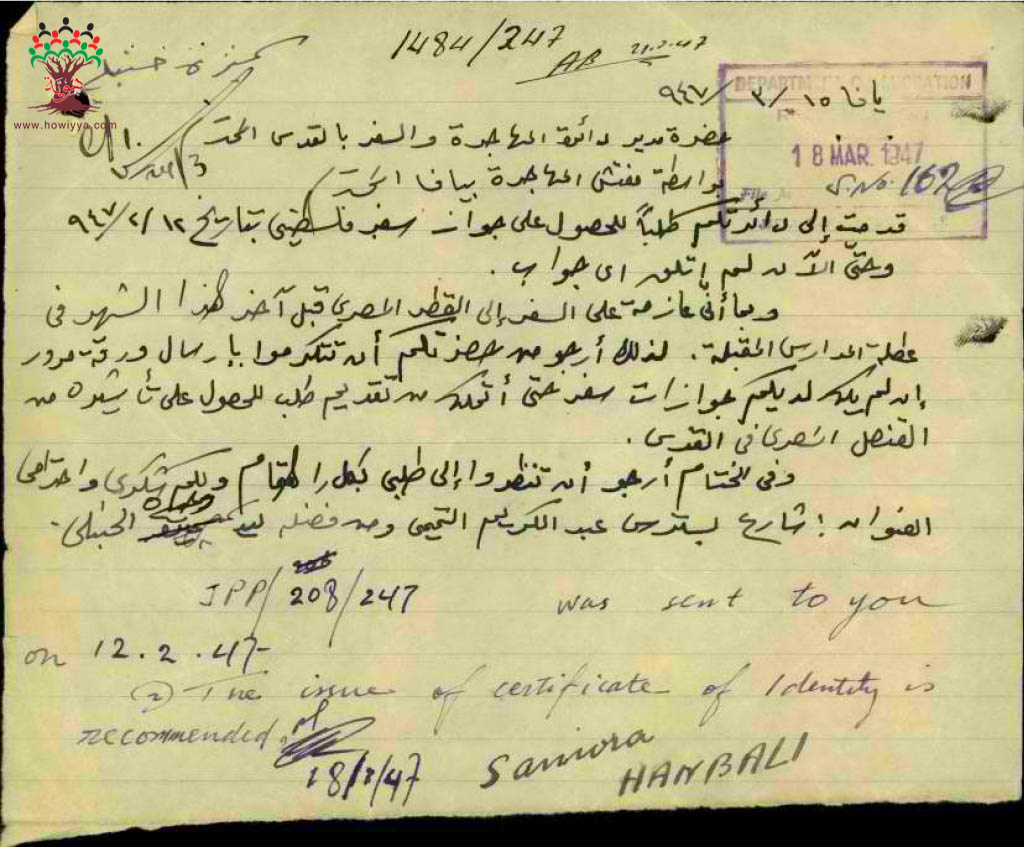 هوية
www.howiyya.com
1484/247
AB 21.3.47
يافا ١٥/٣/٩٤٧
DEPARTMENT OF IMMIGRATION
18 MAR. 1947
S. No. 162
حضرة مدير دائرة المهاجرة والسفر بالقدس المحترم
بواسطة مفتش المهاجرة بيافا المحترم
قدمت إلى دائرتكم طلباً للحصول على جواز سفر فلسطيني بتاريخ ١٢/٢/٩٤٧
وحتى الآن لم اتلق اى جواب .
وبما أني عازمة على السفر إلى القطر المصري قبل آخر هذا الشهر في
عطلة المدارس المقبلة . لذلك أرجو من حضرتكم أن تتكرموا بإرسال ورقة مرور
إن لم يكن لديكم جوازات سفر حتى أتمكن من تقديم طلب للحصول على تأشيرة من
القنصل المصري في القدس .
وفي الختام أرجو أن تنظروا إلى طلبي بكل اهتمام ولكم شكري واحترامي
العنوان : شارع بسترس عبد الكريم التميمي ومن فضله ليد الحنبلي .
JPP/208/247 was sent to you
on 12.2.47-
(2) The issue of certificate of Identity is
recommended.
18/3/47
Samira
HANBALI